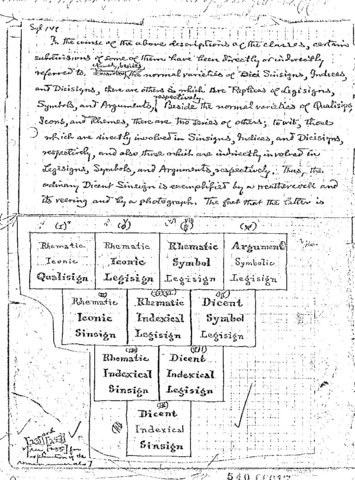 In the course of the above descriptions of the classes, certain
subdivisions of some of them have been directly or indirectly
referred to. the normal varieties of Sinsigns, Indices,
and Dicisigns, there are others which are Replicas of Legisigns,
respectively
Symbols, and Arguments. Beside the normal varieties of Qualisigns,
Icons, and Rhemes, there are two series of others; to wit, those
which are directly involved in Sinsigns, Indices, and Dicisigns,
respectively, and also those which are indirectly involved in
Legisigns, Symbols, and Arguments, respectively. Thus, the
ordinary Dicent Sinsign is exemplified by a weathercock and
its veering and by a photograph. The fact that the latter is
(I) (V) (VIII) (X)
Rhematic Rhematic Rhematic Argument
Iconic Iconic Symbol Symbolic
Qualisign Legisign Legisign Legisign
Rhematic Rhematic Dicent
Iconic Indexical Symbol
Sinsign Legisign Legisign
Rhematic Dicent
Indexical Indexical
Sinsign Legisign
Dicent
Indexical
Sinsign
for
explanation of the
roman numerals]
540